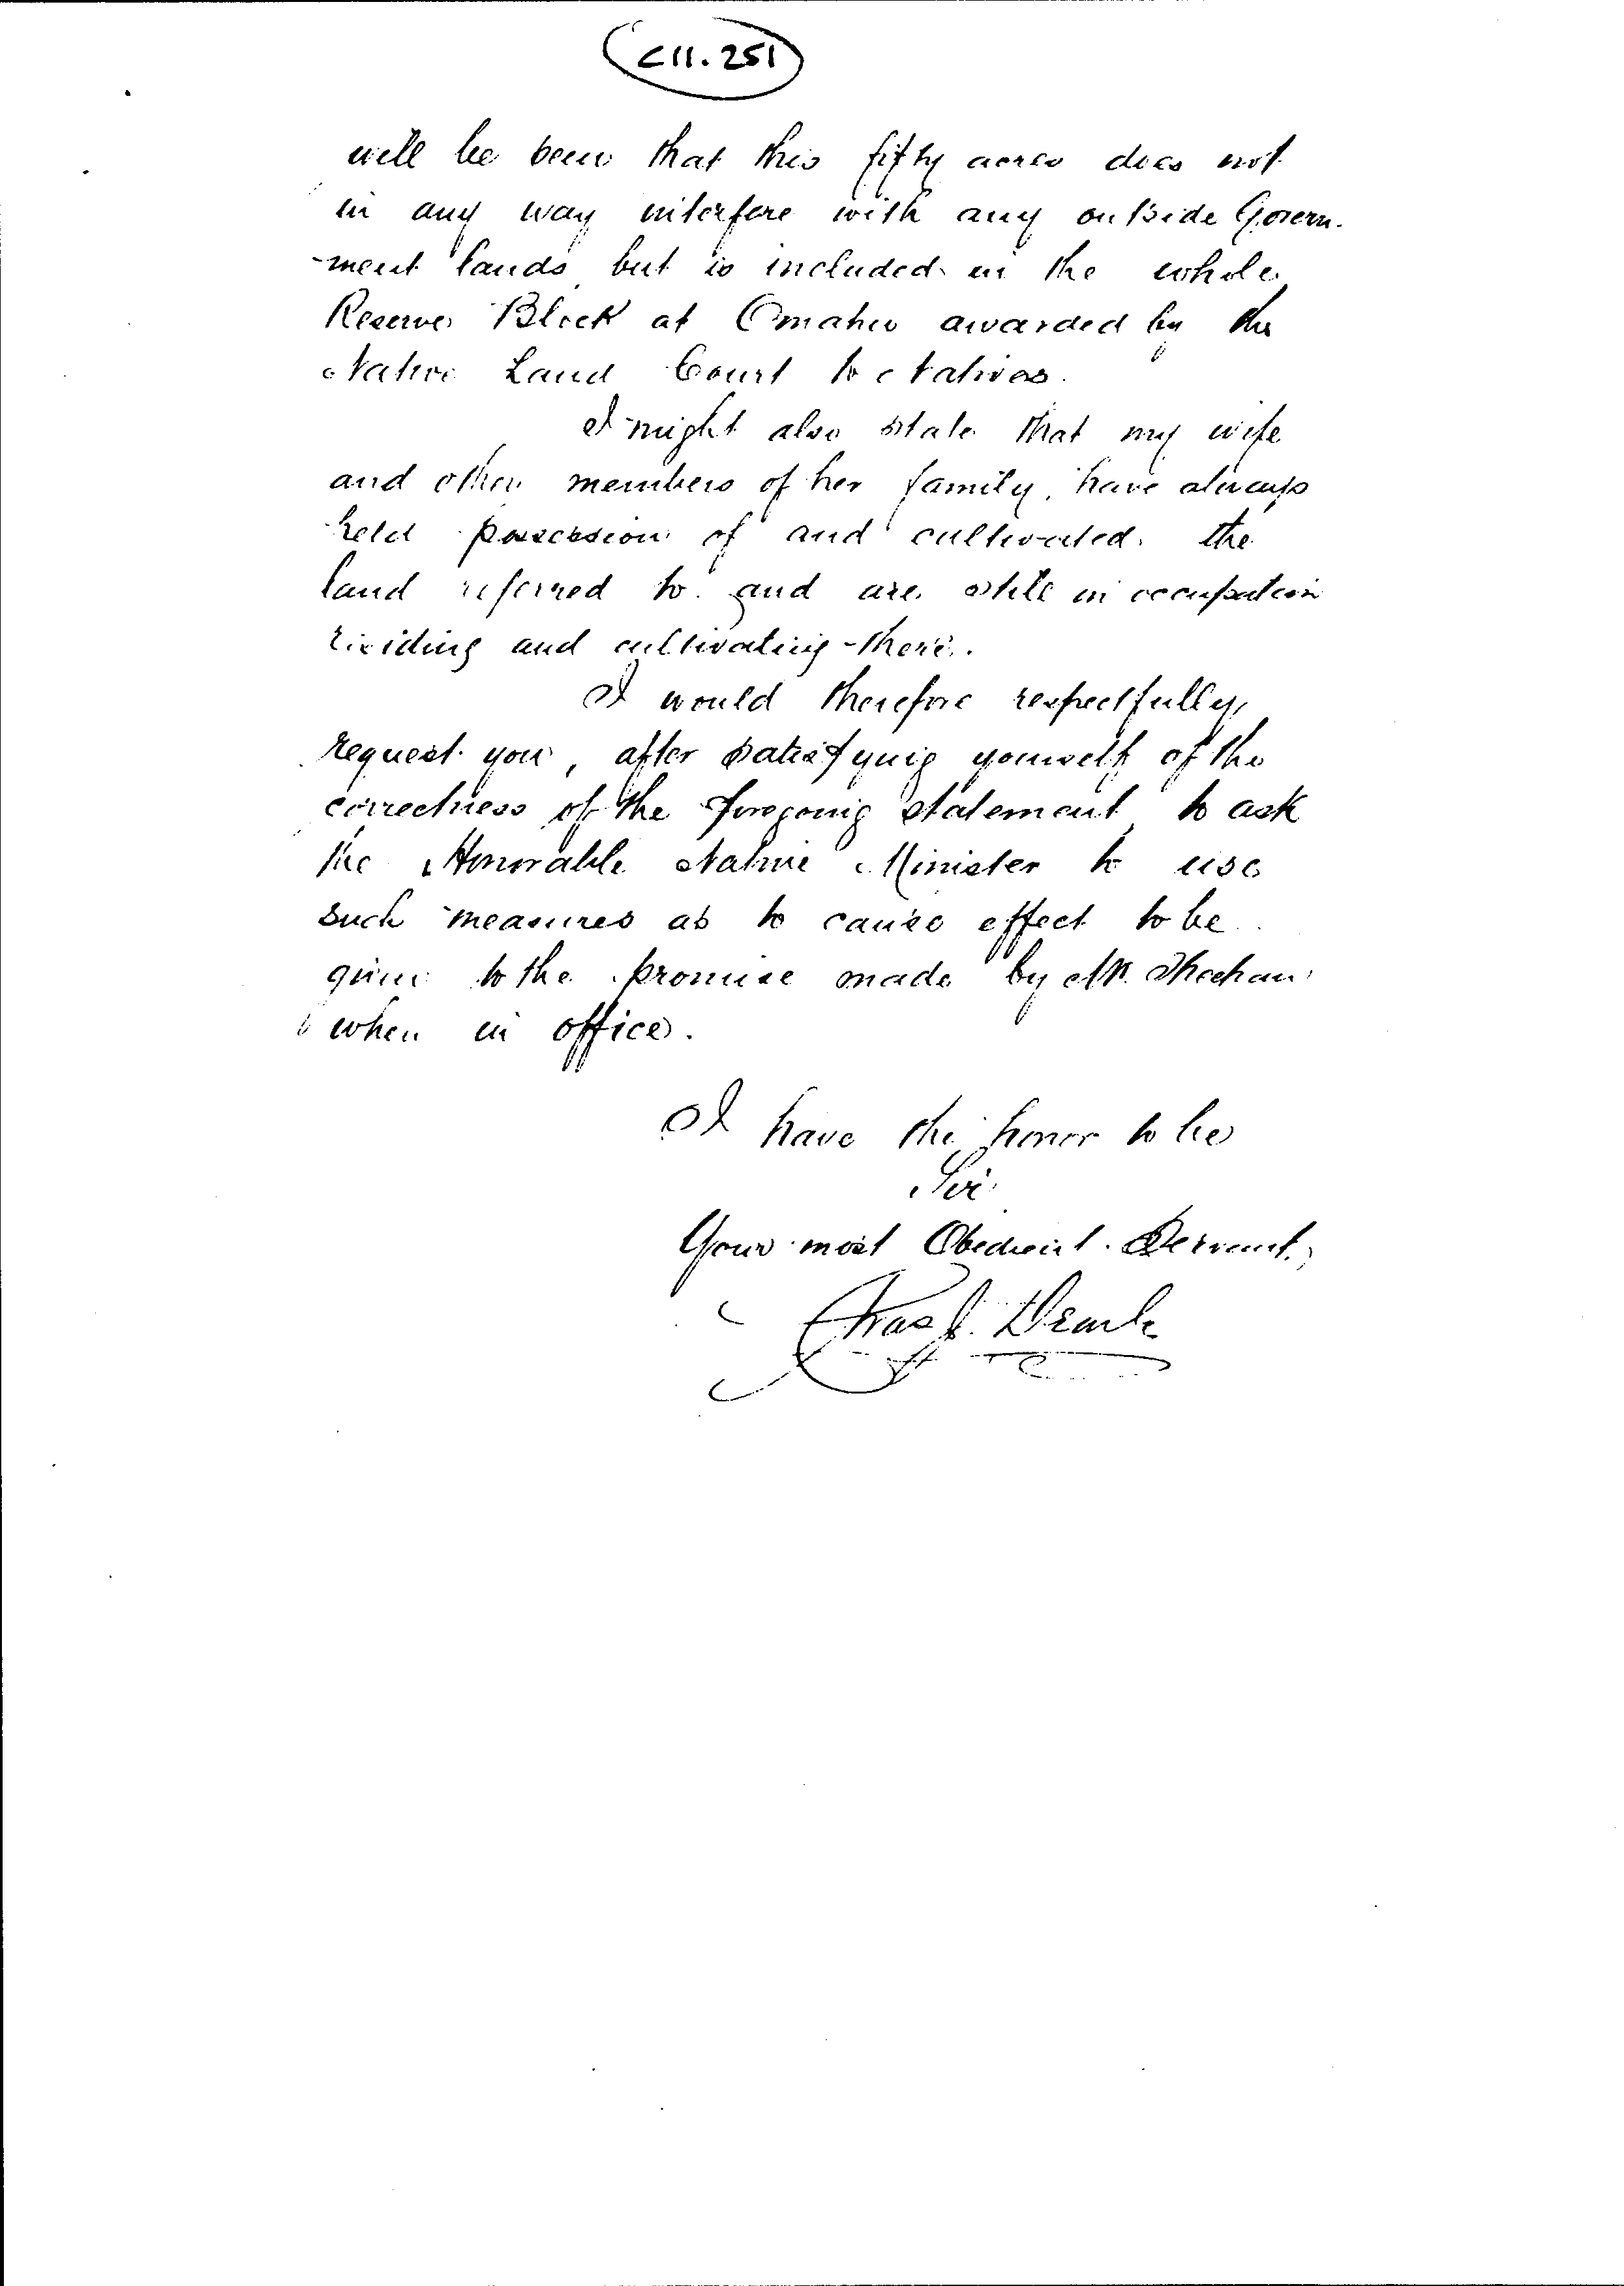 C11.251
will be seen that this fifty acres does not
in any way interfere with any outside Govern-
-ment lands but is included in the whole
Reserve Block at Omahu awarded by the
Native Land Court to Natives.
I might also state that my wife
and other members of her family, have always
held possession of and cultivated the
land referred to and are still in occupation
residing and cultivating there.
I would therefore respectfully,
request you, after satisfying yourself of the
correctness of the foregoing statement to ask
the Honorable Native Minister to use
such measures as to cause effect to be
given to the promise made by Mr. Sheehan
when in office.
I have the honor to be
Sir
Your most Obedient Servant.,
Chas